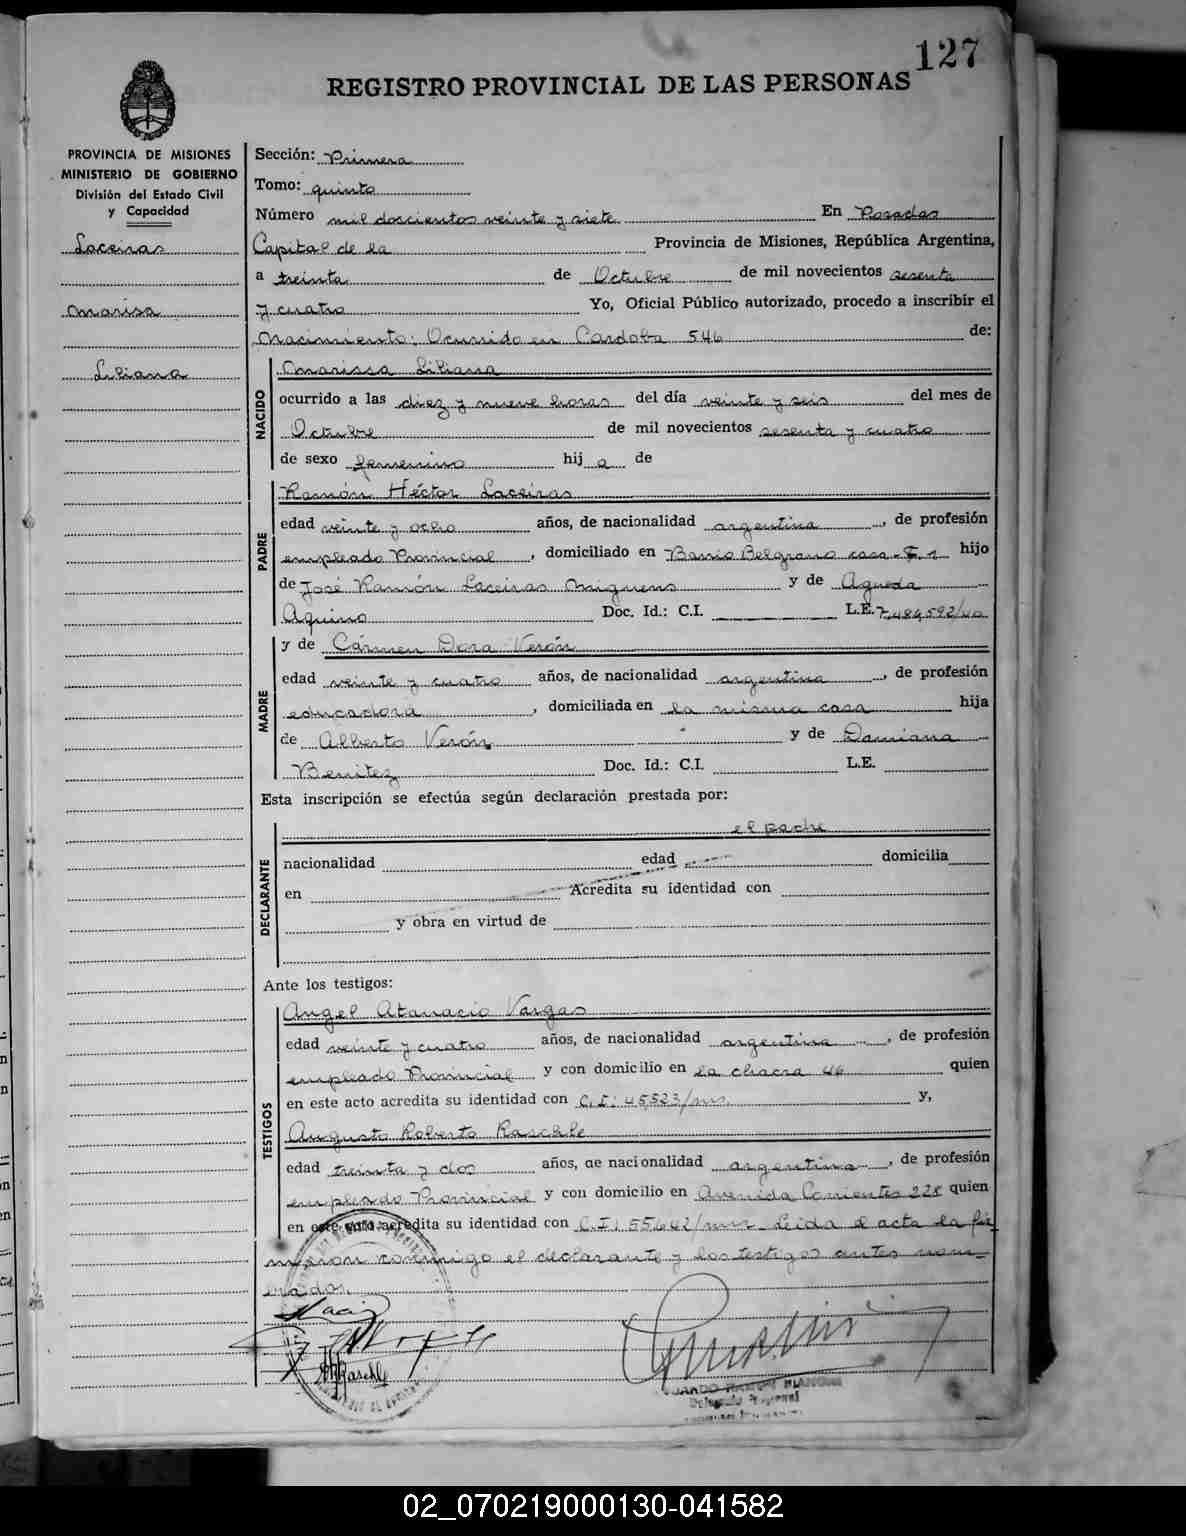 127
REGISTRO PROVINCIAL DE LAS PERSONAS
PROVINCIA DE MISIONES
MINISTERIO DE GOBIERNO
División del Estado Civil
y Capacidad
Laceiras
Marisa
Liliana
Sección: Primera
Tomo: quinto
Número mil doscientos veinte y siete En Posadas
Capital de la Provincia de Misiones, República Argentina,
a treinta de Octubre de mil novecientos sesenta
y cuatro Yo, Oficial Público autorizado, procedo a inscribir el
Nacimiento: Ocurrido en Cordoba 546 de:
NACIDO
Marissa Liliana
ocurrido a las diez y nueve horas del día veinte y seis del mes de
Octubre de mil novecientos sesenta y cuatro
de sexo femenino hij a de
PADRE
Ramón Héctor Laceiras
edad veinte y ocho años, de nacionalidad argentina, de profesión
empleado Provincial, domiciliado en Barrio Belgrano casa hijo
de José Ramón Laceiras Miguens y de Agueda
Aquino Doc. Id.: C.I. L.E. 7.484,592/40
MADRE
y de Cármen Dora Verón
edad veinte y cuatro años, de nacionalidad argentina, de profesión
educadora, domiciliada en la misma casa hija
de Alberto Verón y de Damiana
Benitez Doc. Id.: C.I. L.E.
Esta inscripción se efectúa según declaración prestada por:
DECLARANTE
el padre
nacionalidad edad domicilia
en Acredita su identidad con
y obra en virtud de
Ante los testigos:
TESTIGOS
Angel Atanacio Vargas
edad veinte y cuatro años, de nacionalidad argentina, de profesión
empleado Provincial y con domicilio en la chacra 46 quien
en este acto acredita su identidad con C.I: 45,523/mns. y,
Augusto Roberto Raschle
edad treinta y dos años, de nacionalidad argentina, de profesión
empleado Provincial y con domicilio en Avenida Corrientes 228 quien
en este acto acredita su identidad con C.I: 55,642/mns Leida el acta la fir
maron conmigo el declarante y los testigos antes nom
brados.
02_070219000130-041582